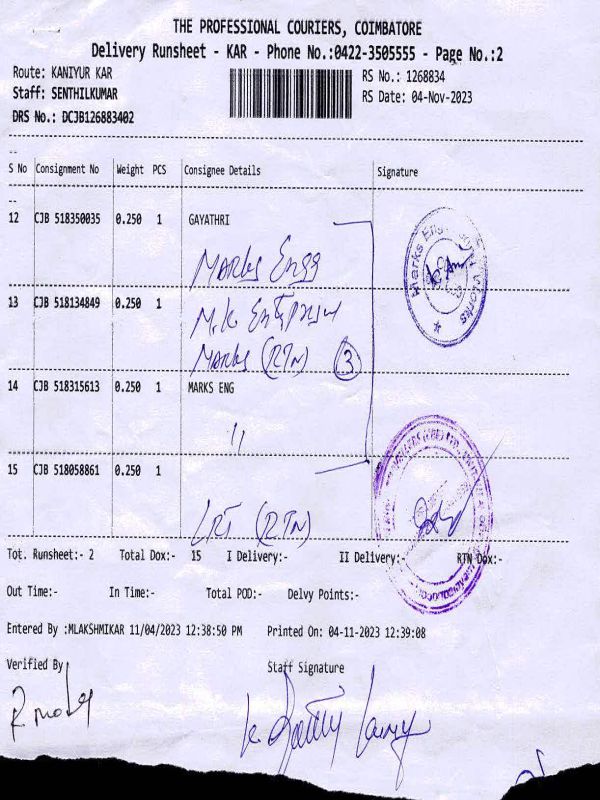 THE PROFESSIONAL COURIERS, COIMBATORE
Delivery Runsheet - KAR - Phone No.:0422-3505555 - Page No.:2
Route: KANIYUR KAR RS No.: 1268834
Staff: SENTHILKUMAR RS Date: 04-Nov-2023
DRS No.: DCJB126883402
S No Consignment No Weight PCS Consignee Details Signature
12 CJB 518350035 0.250 1 GAYATHRI
Marks Engg
Marks Engg Works
13 CJB 518134849 0.250 1 M.K.
Marks (RTN) 3
14 CJB 518315613 0.250 1 MARKS ENG
"
15 CJB 518058861 0.250 1
(RTN)
Tot. Runsheet:- 2 Total Dox:- 15 I Delivery:- II Delivery:- RTN Dox:-
Out Time:- In Time:- Total POD:- Delvy Points:-
Entered By :MLAKSHMIKAR 11/04/2023 12:38:50 PM Printed On: 04-11-2023 12:39:08
Verified By Staff Signature